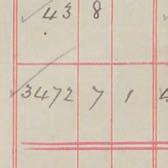 43 8
3472 7 1